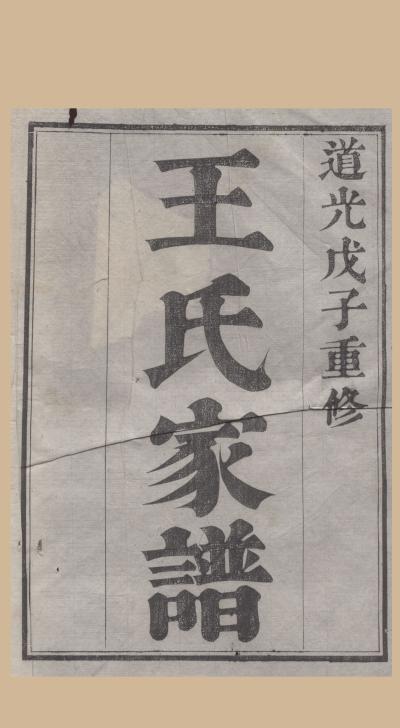 道光戊子重修
王氏家譜